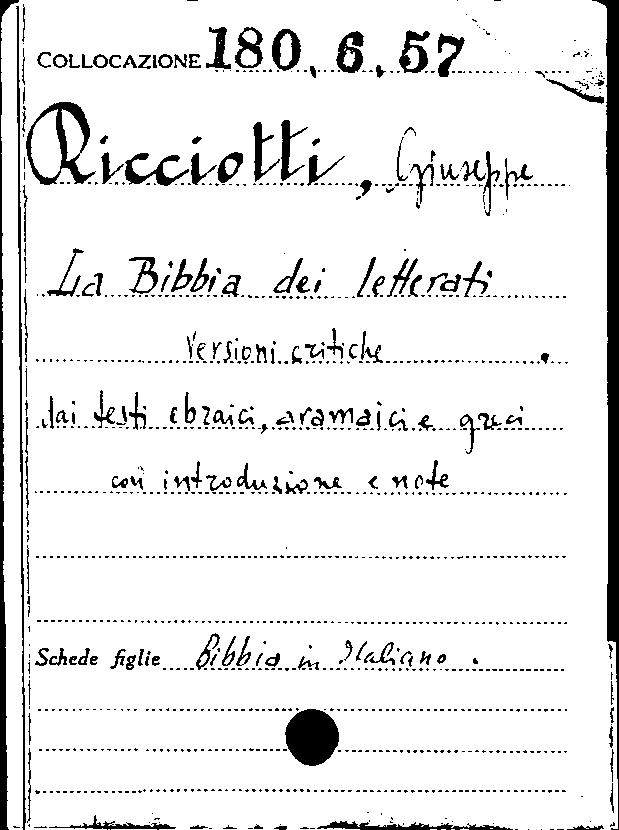 COLLOCAZIONE 180.6.57
Ricciotti, Giuseppe
La Bibbia dei letterati
Versioni critiche
dai testi ebraici, aramaici e greci
con introduzione e note
Schede figlie Bibbia in Italiano.